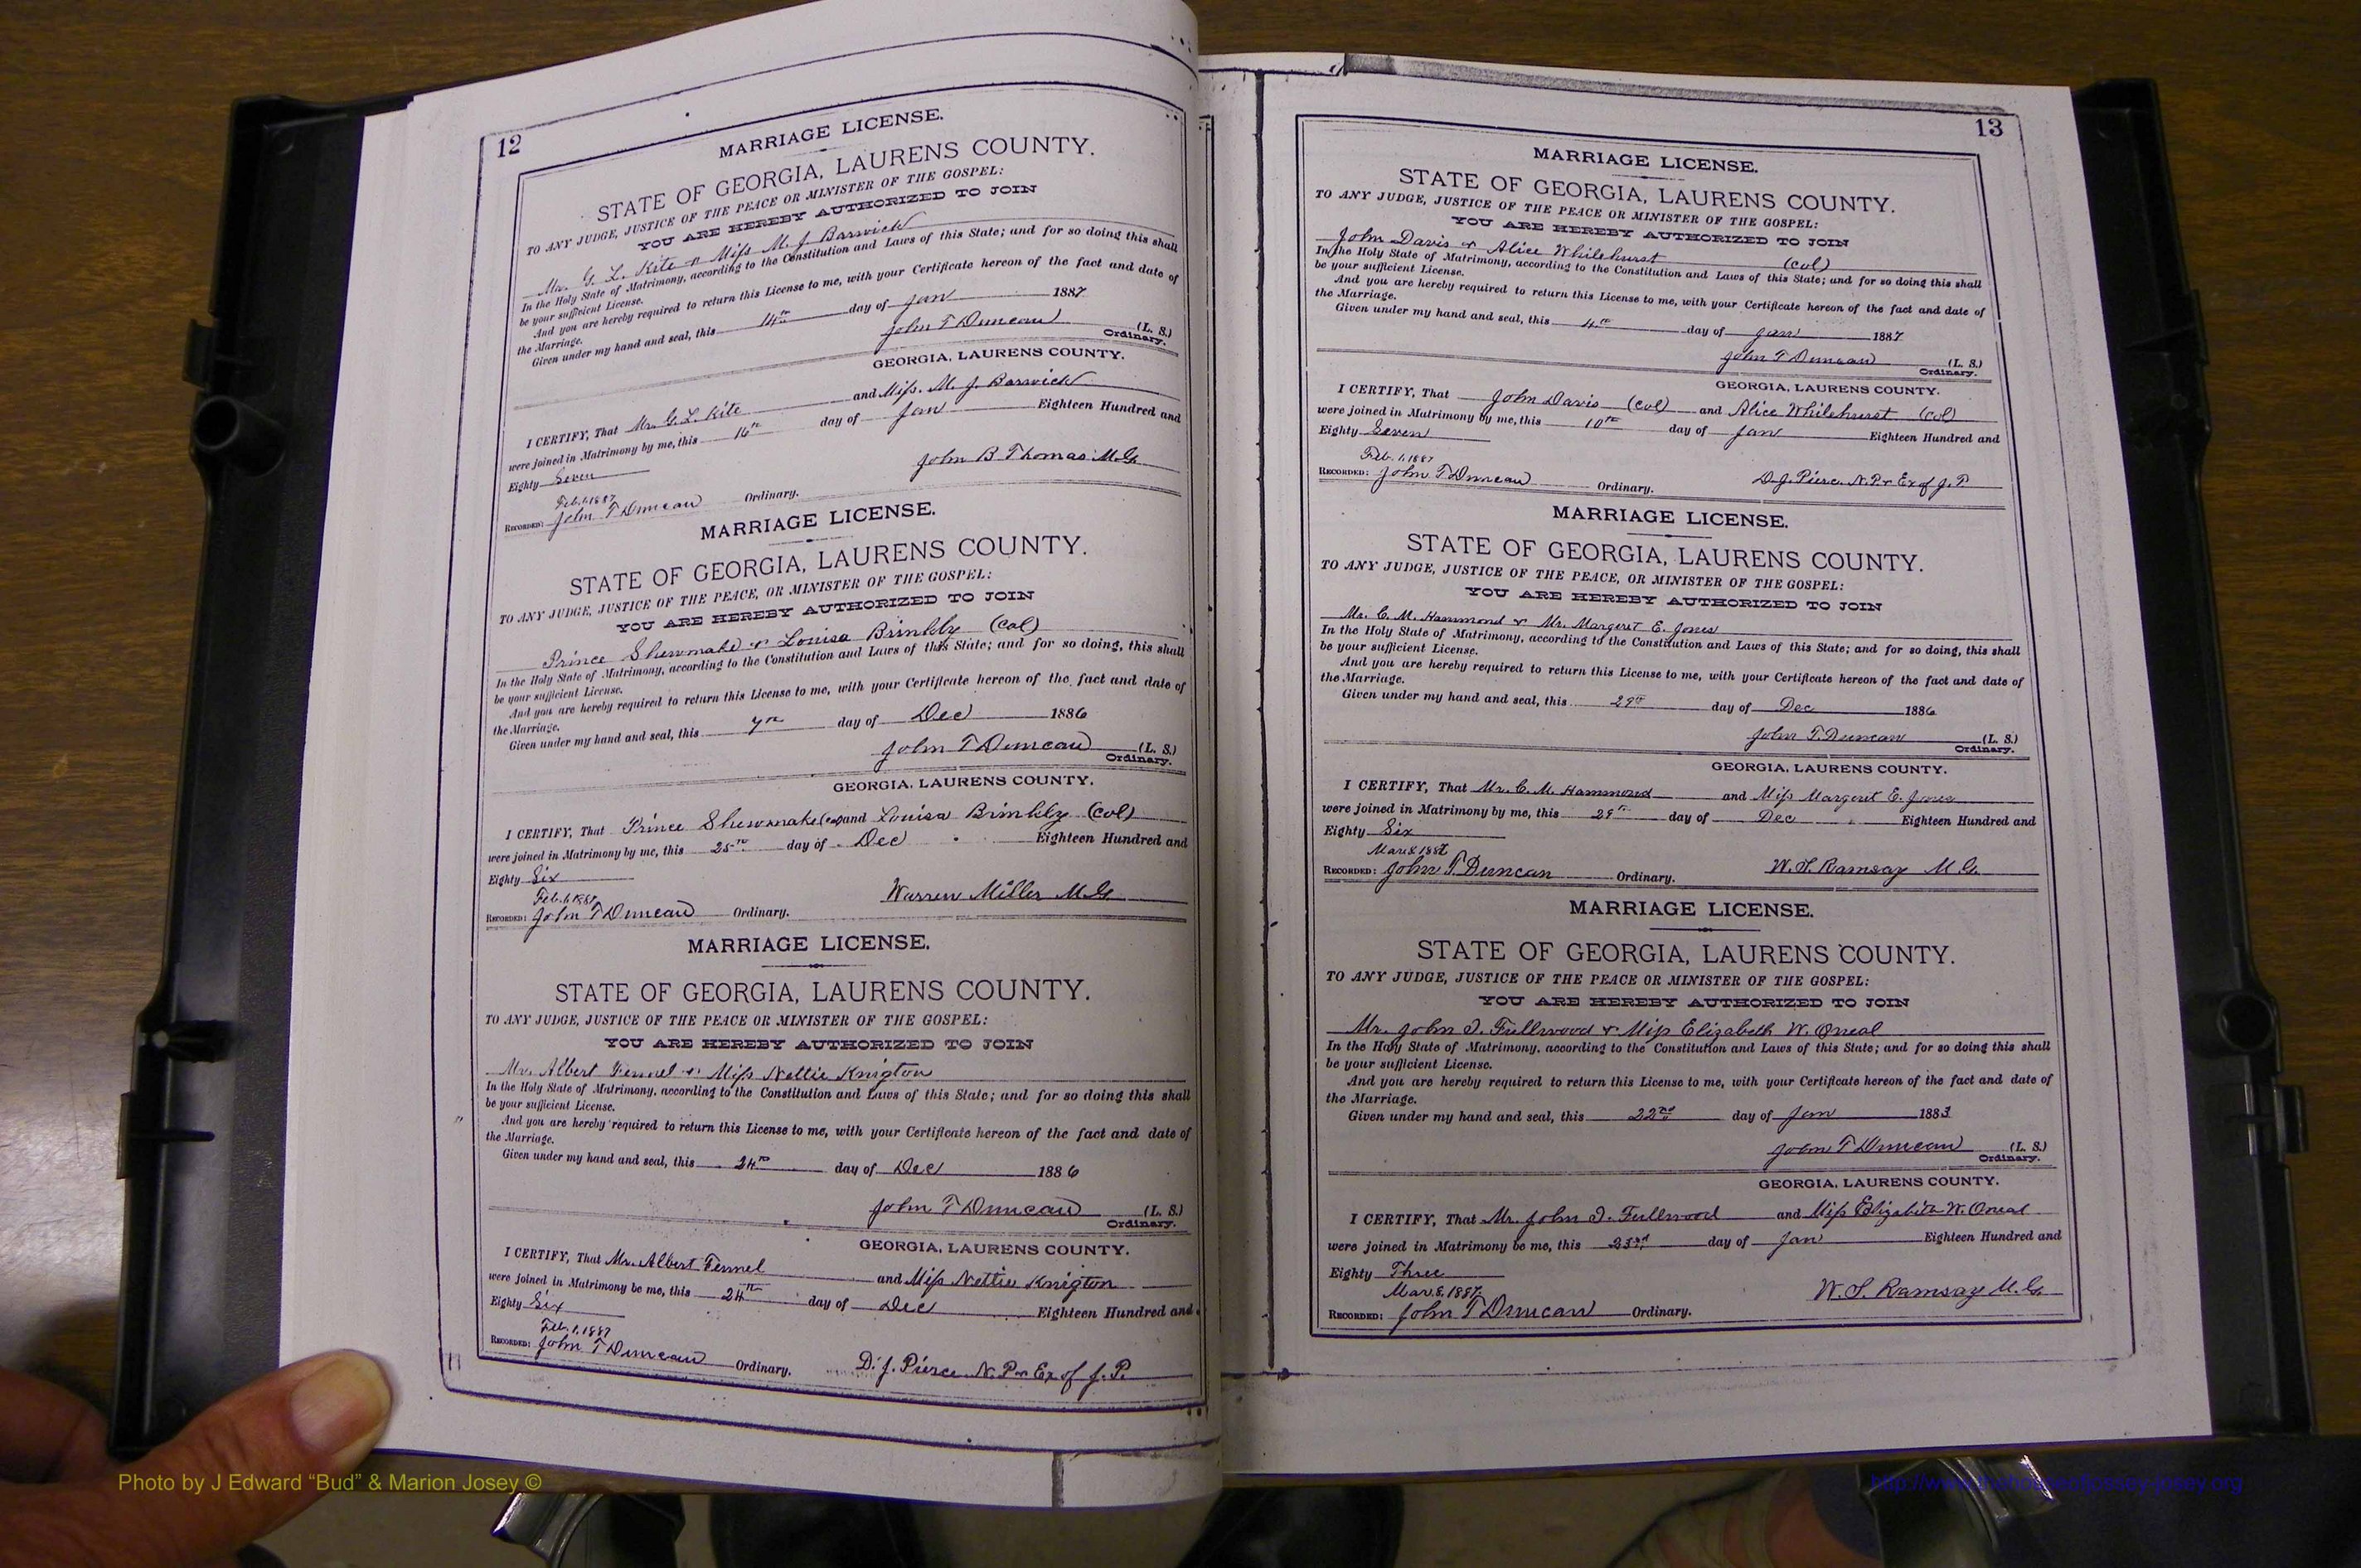 12
MARRIAGE LICENSE.
STATE OF GEORGIA, LAURENS COUNTY.
TO ANY JUDGE, JUSTICE OF THE PEACE OR MINISTER OF THE GOSPEL:
YOU ARE HEREBY AUTHORIZED TO JOIN
Mr. G. L. Kite & Miss M. J. Barwick
In the Holy State of Matrimony, according to the Constitution and Laws of this State; and for so doing this shall
be your sufficient License.
And you are hereby required to return this License to me, with your Certificate hereon of the fact and date of
the Marriage.
Given under my hand and seal, this 14th day of Jan 1887
John T Duncan (L. S.)
Ordinary.
GEORGIA, LAURENS COUNTY.
I CERTIFY, That Mr. G. L. Kite and Miss. M. J. Barwick
were joined in Matrimony by me, this 16th day of Jan Eighteen Hundred and
Eighty Seven
John B Thomas M.G.
Feb. 1. 1887
RECORDED: John T Duncan Ordinary.
MARRIAGE LICENSE.
STATE OF GEORGIA, LAURENS COUNTY.
TO ANY JUDGE, JUSTICE OF THE PEACE, OR MINISTER OF THE GOSPEL:
YOU ARE HEREBY AUTHORIZED TO JOIN
Prince Shewmake & Louisa Brinkly (Col)
In the Holy State of Matrimony, according to the Constitution and Laws of this State; and for so doing, this shall
be your sufficient License.
And you are hereby required to return this License to me, with your Certificate hereon of the fact and date of
the Marriage.
Given under my hand and seal, this 7th day of Dec 1886
John T Duncan (L. S.)
Ordinary.
GEORGIA, LAURENS COUNTY.
I CERTIFY, That Prince Shewmake (col) and Louisa Brinkly (Col)
were joined in Matrimony by me, this 25th day of Dec Eighteen Hundred and
Eighty Six
Warren Miller M.G.
Feb. 1. 1887
RECORDED: John T Duncan Ordinary.
MARRIAGE LICENSE.
STATE OF GEORGIA, LAURENS COUNTY.
TO ANY JUDGE, JUSTICE OF THE PEACE OR MINISTER OF THE GOSPEL:
YOU ARE HEREBY AUTHORIZED TO JOIN
Mr. Albert Fennel & Miss Nettie Knigton
In the Holy State of Matrimony, according to the Constitution and Laws of this State; and for so doing this shall
be your sufficient License.
And you are hereby required to return this License to me, with your Certificate hereon of the fact and date of
the Marriage.
Given under my hand and seal, this 24th day of Dec 1886
John T Duncan (L. S.)
Ordinary.
GEORGIA, LAURENS COUNTY.
I CERTIFY, That Mr. Albert Fennel and Miss Nettie Knigton
were joined in Matrimony be me, this 24th day of Dec Eighteen Hundred and
Eighty Six
Feb. 1. 1887
RECORDED: John T Duncan Ordinary. D. J. Pierce N.P. & Ex of J.P.
13
MARRIAGE LICENSE.
STATE OF GEORGIA, LAURENS COUNTY.
TO ANY JUDGE, JUSTICE OF THE PEACE OR MINISTER OF THE GOSPEL:
YOU ARE HEREBY AUTHORIZED TO JOIN
John Davis & Alice Whilehurst (Col)
In the Holy State of Matrimony, according to the Constitution and Laws of this State; and for so doing this shall
be your sufficient License.
And you are hereby required to return this License to me, with your Certificate hereon of the fact and date of
the Marriage.
Given under my hand and seal, this 4th day of Jan 1887
John T Duncan (L. S.)
Ordinary.
GEORGIA, LAURENS COUNTY.
I CERTIFY, That John Davis (Col) and Alice Whilehurst (Col)
were joined in Matrimony by me, this 10th day of Jan Eighteen Hundred and
Eighty Seven
Feb. 1. 1887
RECORDED: John T Duncan Ordinary. D. J. Pierce N.P. & Ex of J.P.
MARRIAGE LICENSE.
STATE OF GEORGIA, LAURENS COUNTY.
TO ANY JUDGE, JUSTICE OF THE PEACE, OR MINISTER OF THE GOSPEL:
YOU ARE HEREBY AUTHORIZED TO JOIN
Mr. C. M. Hammond & Mr. Margeret E. Jones
In the Holy State of Matrimony, according to the Constitution and Laws of this State; and for so doing, this shall
be your sufficient License.
And you are hereby required to return this License to me, with your Certificate hereon of the fact and date of
the Marriage.
Given under my hand and seal, this 29th day of Dec 1886
John T. Duncan (L. S.)
Ordinary.
GEORGIA, LAURENS COUNTY.
I CERTIFY, That Mr. C. M. Hammond and Miss Margeret E. Jones
were joined in Matrimony by me, this 29th day of Dec Eighteen Hundred and
Eighty Six
Mar. 8. 1887
RECORDED: John T. Duncan Ordinary. W. S. Ramsay M.G.
MARRIAGE LICENSE.
STATE OF GEORGIA, LAURENS COUNTY.
TO ANY JUDGE, JUSTICE OF THE PEACE OR MINISTER OF THE GOSPEL:
YOU ARE HEREBY AUTHORIZED TO JOIN
Mr. John I. Fullwood & Miss Elizabeth W. Oneal
In the Holy State of Matrimony, according to the Constitution and Laws of this State; and for so doing this shall
be your sufficient License.
And you are hereby required to return this License to me, with your Certificate hereon of the fact and date of
the Marriage.
Given under my hand and seal, this 22nd day of Jan 1883
John T Duncan (L. S.)
Ordinary.
GEORGIA, LAURENS COUNTY.
I CERTIFY, That Mr. John I. Fullwood and Miss Elizabeth W. Oneal
were joined in Matrimony be me, this 23rd day of Jan Eighteen Hundred and
Eighty Three
Mar. 8. 1887. W. S. Ramsay M.G.
RECORDED: John T Duncan Ordinary.
Photo by J Edward “Bud” & Marion Josey ©
http://www.thehouseofjossey-josey.org